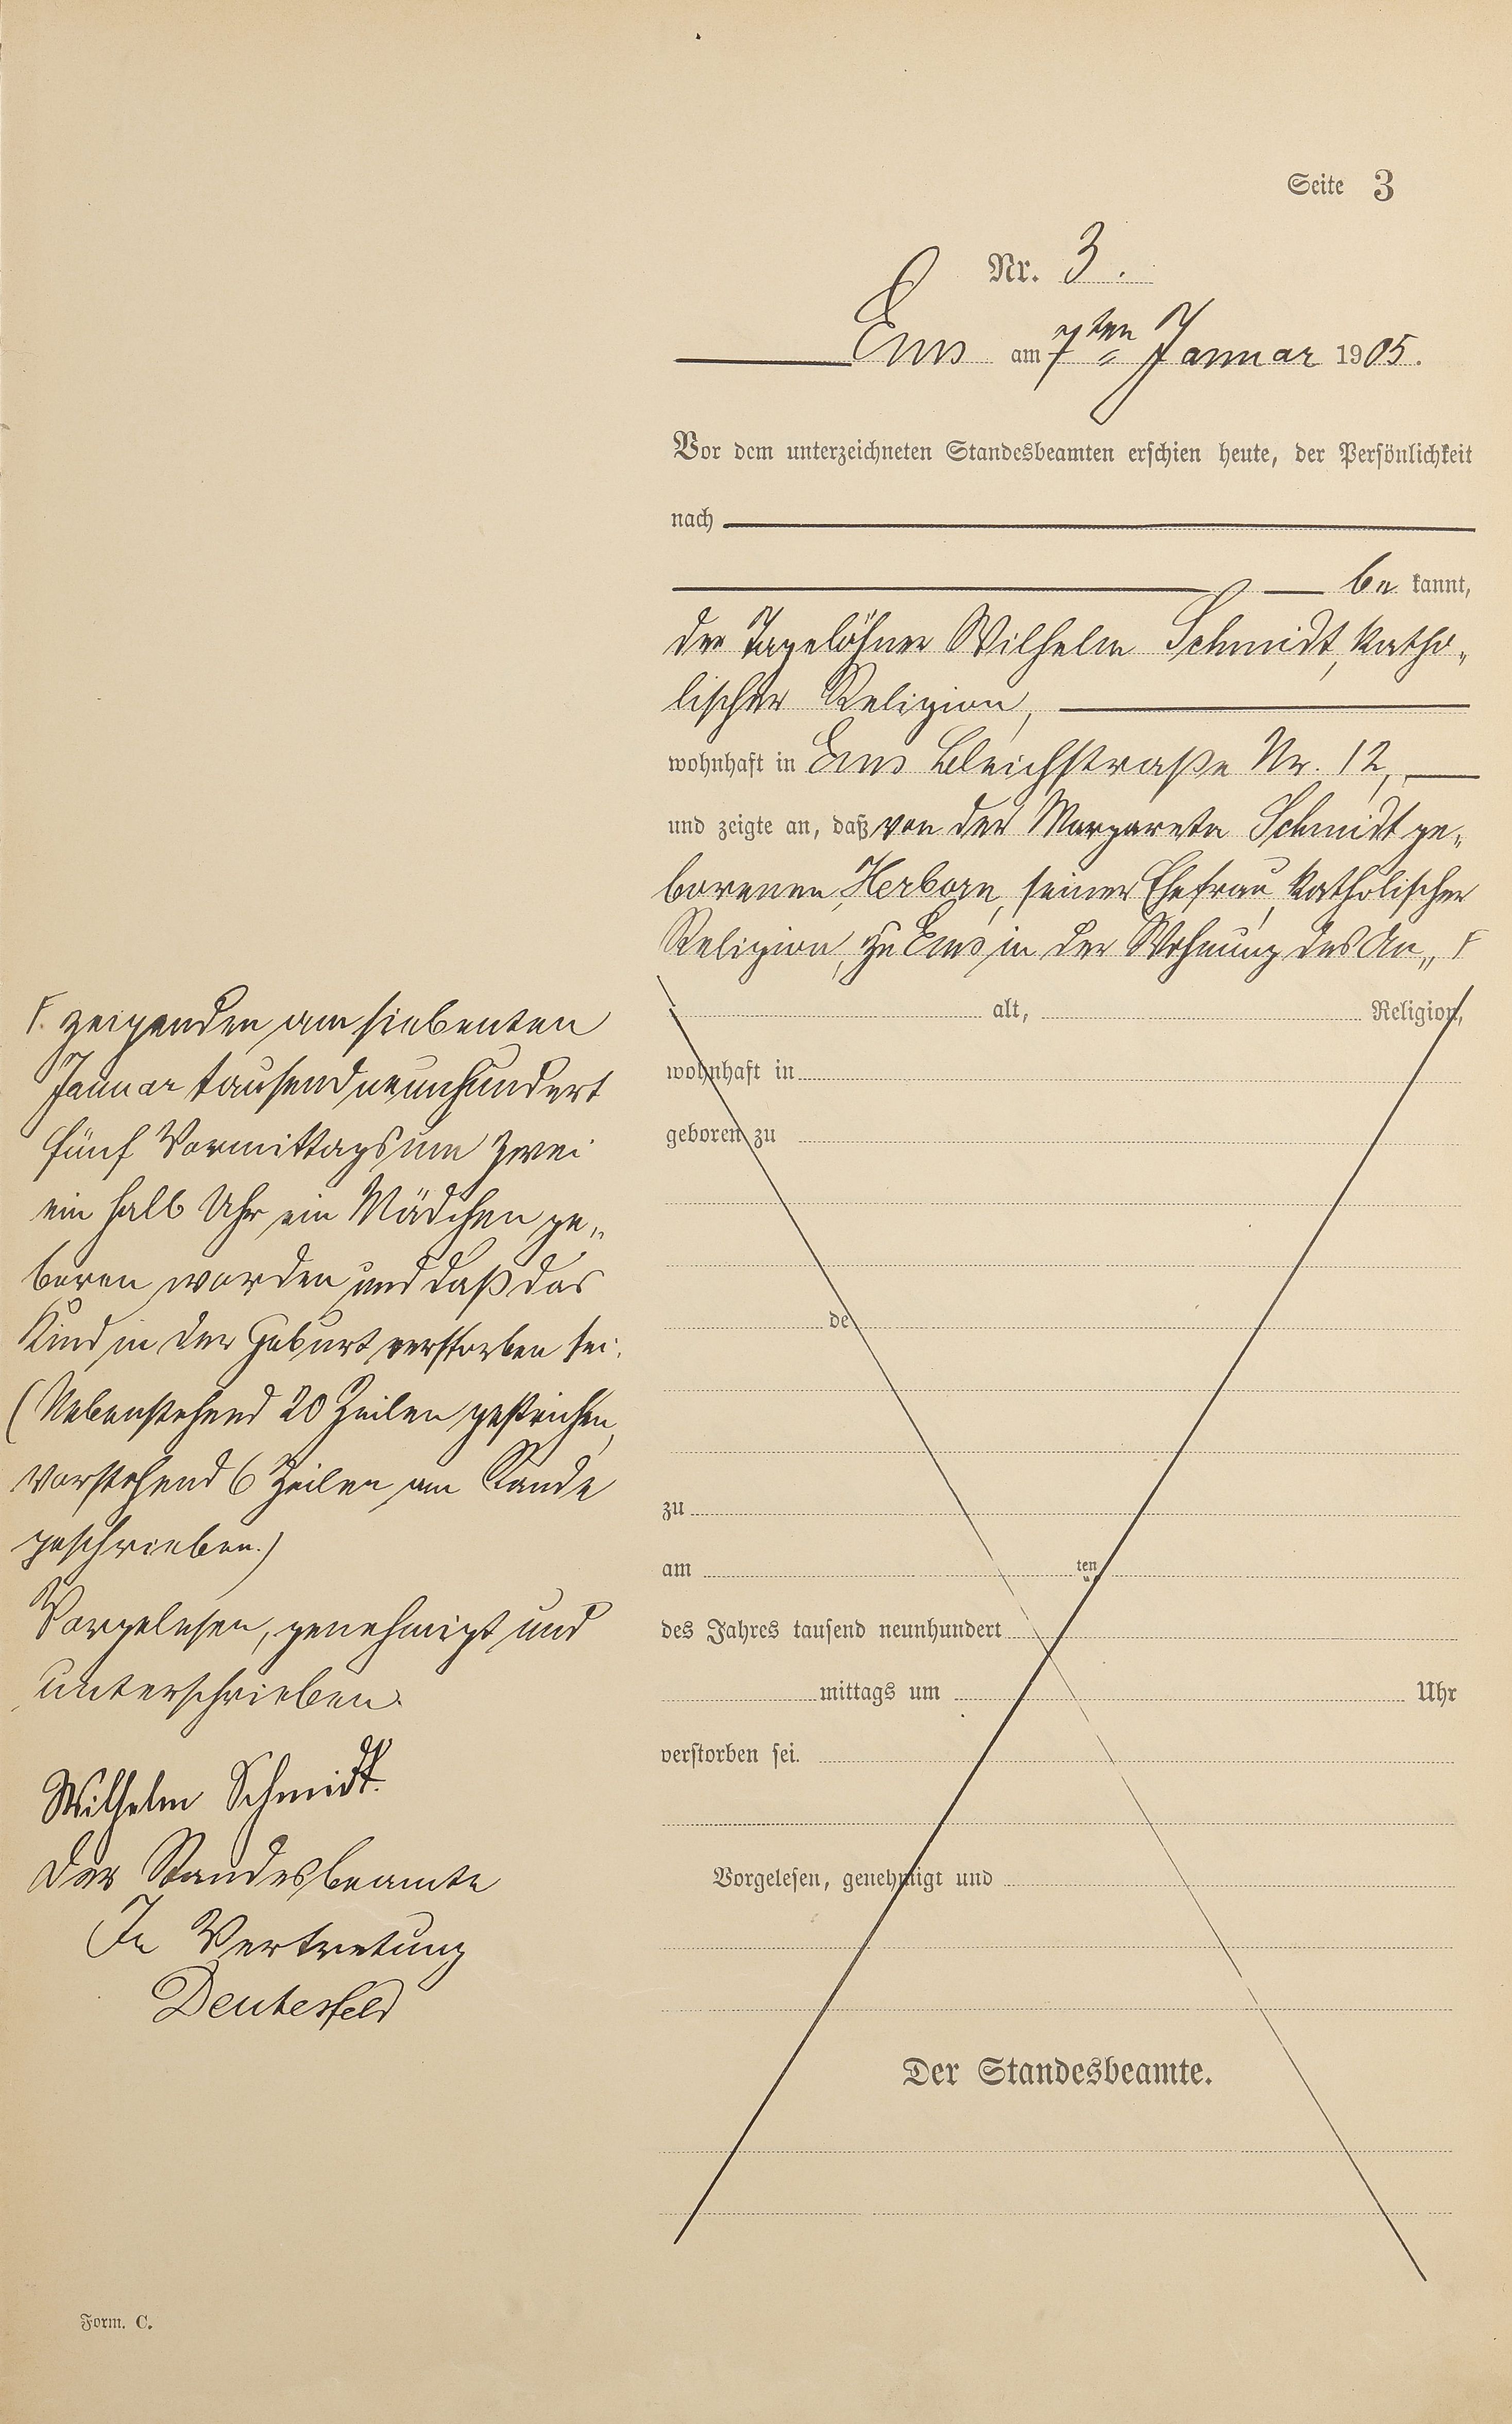 Seite 3
Nr. 3.
Ems am 7ten Januar 1905.
Vor dem unterzeichneten Standesbeamten erschien heute, der Persönlichkeit
nach
be kannt,
der Tagelöhner Wilhelm Schmidt, katho„
lischer Religion,
wohnhaft in Ems Bleichstraße Nr. 12,
und zeigte an, daß von der Margareta Schmidt ge„
borenen Herborn, seiner Ehefrau, katholischer
Religion, zu Ems in der Wohnung des An„ F
F. zeigenden am siebenten
Januar tausend neunhundert
fünf Vormittags um zwei
ein halb Uhr ein Mädchen ge„
boren worden und daß das
Kind in der Geburt verstorben sei.
(Nebenstehend 20 Zeilen gestrichen,
vorstehend 6 Zeilen am Rande
geschrieben.)
Vorgelesen, genehmigt und
unterschrieben.
Wilhelm Schmidt.
Der Standesbeamte
In Vertretung
Deutesfeld
alt, Religion,
wohnhaft in
geboren zu
de
zu
am ten
des Jahres tausend neunhundert
mittags um Uhr
verstorben sei.
Vorgelesen, genehmigt und
Der Standesbeamte.
Form. C.